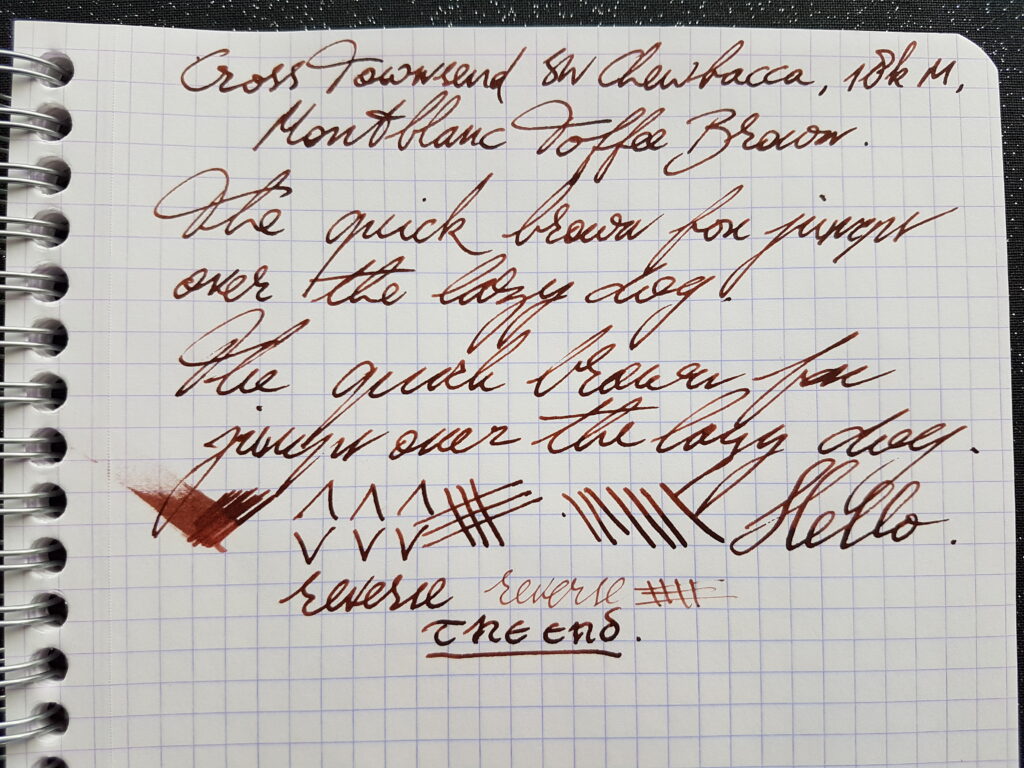 Cross Townsend SW Chewbacca, 18k M,
Montblanc Toffee Brown.
The quick brown fox jumps
over the lazy dog.
The quick brown fox
jumps over the lazy dog.
Hello.
reverse reverse
THE END.